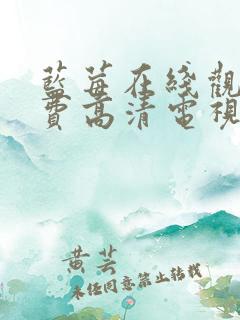 藍莓在綫觀
費高清電視
黄芸
未经同意禁止转载